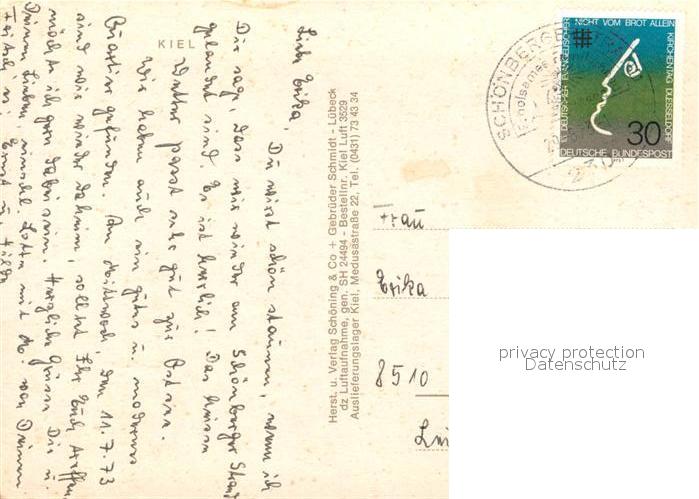 KIEL
Liebe Erika,
Du wirst schön staunen, wenn ich
Dir sage, dass wir wieder am Schönberger Strand
gelandet sind. Es ist herrlich! Das heisse
Wetter passt sehr gut zur Ostsee.
Wir haben auch ein gutes u. modernes
Quartier gefunden. Am Mittwoch, den 11.7.73
sind wir wieder daheim, solltet Ihr Euch treffen,
möchte ich gern dabei sein. Herzliche Grüsse Dir u.
Deinen Lieben, einschl. Lotte mit M. von Deinen
Ernst u. Hilde
Herst. u. Verlag Schöning & Co + Gebrüder Schmidt - Lübeck
dz Luftaufnahme, gen. SH 24494 - Bestellnr. Kiel Luft 3529
Auslieferungslager Kiel, Medusastraße 22, Tel. (0431) 73 43 34
SCHÖNBERGER
NICHT VOM BROT ALLEIN
15. DEUTSCHER EVANGELISCHER
KIRCHENTAG DUESSELDORF
30
DEUTSCHE BUNDESPOST
Frau
Erika
8510
privacy protection
Datenschutz